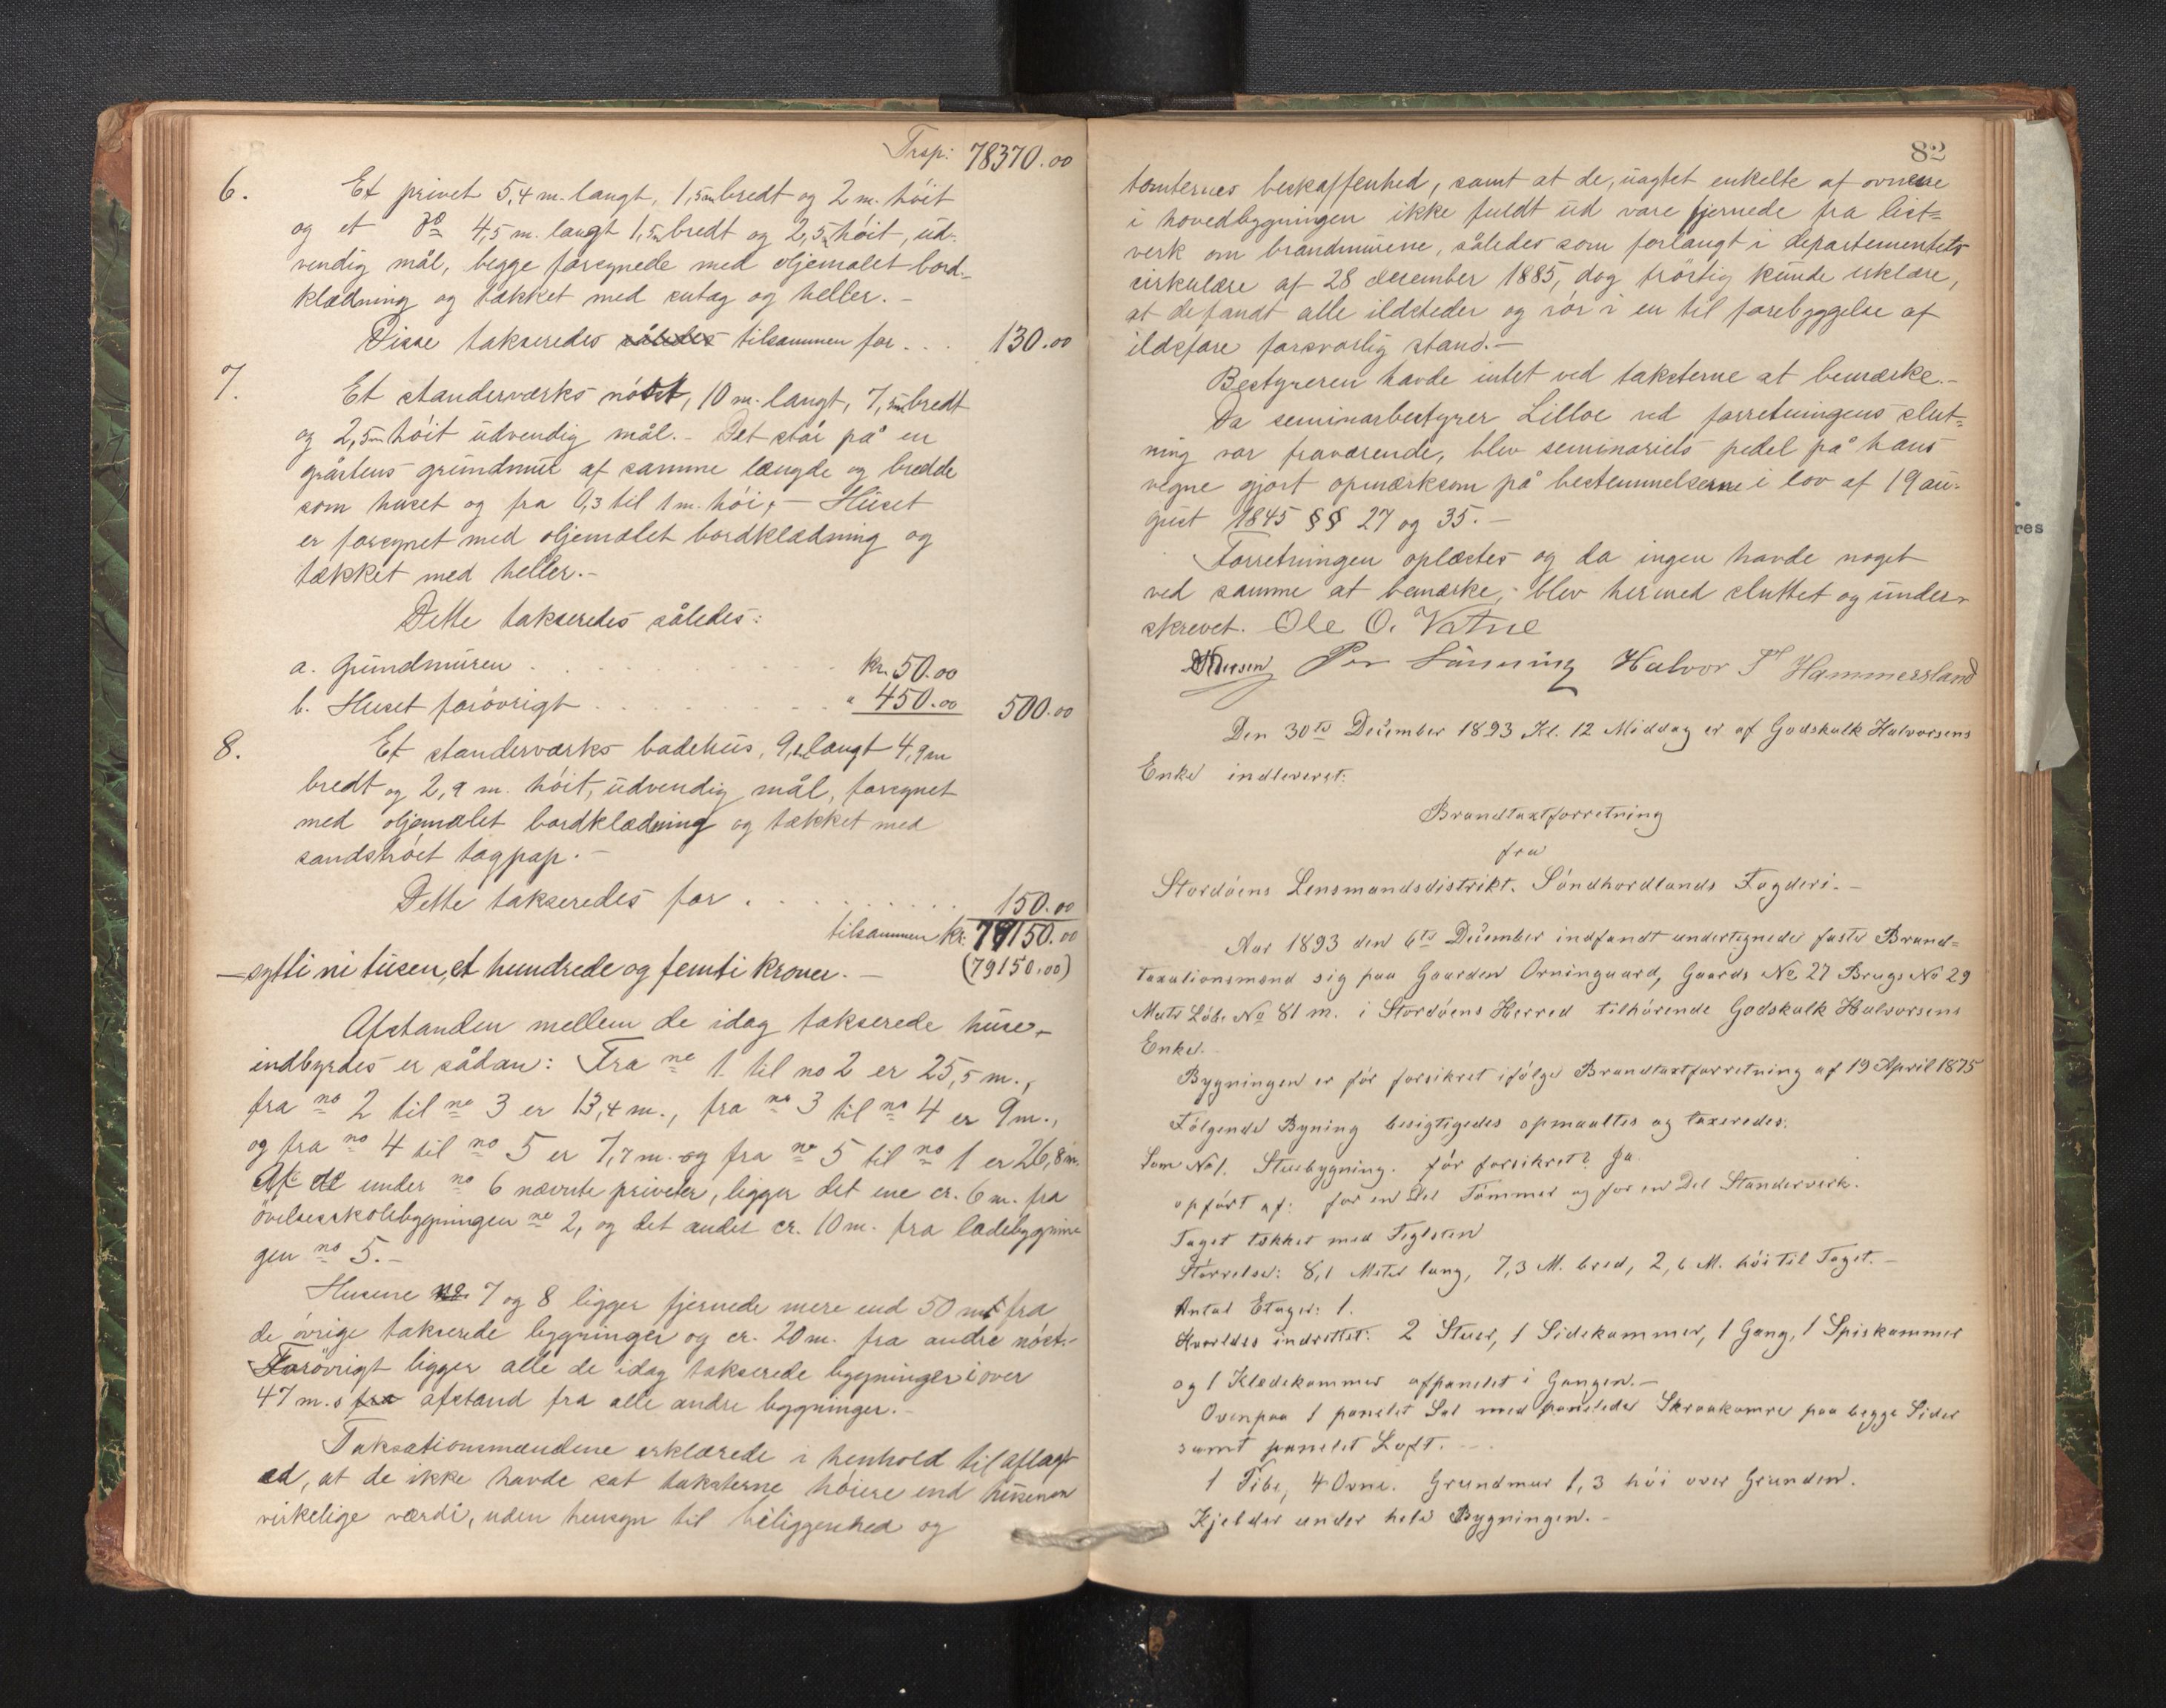 Trsp: 78370.00
6. Et privet 5,4 m. langt, 1,5m bredt og 2 m. höit
og et do 4,5 m. langt 1,5m bredt og 2,5m höit, ud-
vendig mål, begge forsynede med oljemalet bord-
klædning og tækket med sutag og heller. -
Disse takseredes således tilsammen for . . . 130.00
7. Et standerværks nöst, 10 m. langt, 7,5m bredt
og 2,5m höit udvendig mål. - Det står på en
gråstens grundmur af samme længde og bredde
som huset og fra 0,3 til 1 m. höi, - Huset
er forsynet med oljemalet bordklædning og
tækket med heller. -
Dette takseredes således:
a. Grundmuren . . . . kr. 50.00
b. Huset forövrigt . . . . " 450.00 500.00
8. Et standerværks badehus, 9, langt 4,9m
bredt og 2,9 m. höit, udvendig mål, forsynet
med oljemalet bordklædning og tækket med
sandströet tagpap. -
Dette takseredes for . . . . 150.00
tilsammen kr. 79150.00
- sytti ni tusen, et hundrede og femti kroner. - (79150.00)
Afstanden mellem de idag takserede huse
indbyrdes er sådan: Fra no 1 til no 2 er 25,5 m.,
fra no 2 til no 3 er 13,4 m., fra no 3 til no 4 er 9 m.,
og fra no 4 til no 5 er 7,7 m. og fra no 5 til no 1 er 26,8 m.
Af de under no 6 nævnte priveter, ligger det ene cr. 6 m. fra
övelsesskolebygningen no 2, og det andet cr. 10 m. fra ladebygnin-
gen no 5. -
Husene no. 7 og 8 ligger fjernede mere end 50 m. fra
de övrige takserede bygninger og cr. 20 m. fra andre nöst.
Forövrigt ligger alle de idag takserede bygninger i over
47 m. s fra afstand fra alle andre bygninger. -
Taksationsmændene erklærede i henhold til aflagt
ed, at de ikke havde sat taksterne höiere end husenes
virkelige værdi, uden hensyn til beliggenhed og
82
tomternes beskaffenhed, samt at de, uagtet enkelte af ovnene
i hovedbygningen ikke fuldt ud vare fjernede fra list=
verk om brandmurene, således som forlangt i departementets
cirkulære af 28 december 1885, dog tröstig kunde erklære,
at de fandt alle ildsteder og rör i en til forebyggelse af
ildsfare forsvarlig stand. -
Bestyreren havde intet ved taksterne at bemærke. -
Da seminarbestyrer Lilloe ved forretningens slut=
ning var fraværende, blev seminariets pedel på hans
vegne gjort opmærksom på bestemmelserne i lov af 19 au-
gust 1845 §§ 27 og 35. -
Forretningen oplæstes og da ingen havde noget
ved samme at bemærke, blev hermed sluttet og under-
skrevet. Ole O. Vatne
Per Lönning Halvor T Hammersland
Den 30te December 1893 Kl. 12 Middag er af Godskalk Halvorsens
Enke indleveret:
Brandtaxtforretning
fra
Stordöens Lensmandsdistrikt. Söndhordlands Fogderi. -
Aar 1893 den 6te December indfandt undertegnede faste Brand=
taxationsmænd sig paa Gaarden Orninggaard, Gaards No 27 Brugs No 29
Matr Löbe No 81 m. i Stordöens Herred tilhörende Godskalk Halvorsens
Enke.
Bygningen er för forsikret ifölge Brandtaxtforretning af 19 April 1875
Fölgende Bygning besigtigedes opmaaltes og taxeredes:
Som No 1. Stuebygning. för forsikret? Ja.
opfört af: for en Del Tömmer og for en Del Standerverk.
Taget tækket med Teglsten
Störrelse: 8,1 Meter lang, 7,3 M. bred, 2,6 M. höi til Taget. -
Antal Etager: 1.
Hvorledes indrettet: 2 Stuer, 1 Sidekammer, 1 Gang, 1 Spiskammer
og 1 Klædekammer afpanelet i Gangen. -
Ovenpaa 1 panelet Sal med panelede Skraakamre paa begge Sider
samt panelet Loft. -
1 Pibe, 4 Ovne. Grundmur 1,3 höi over Grunden.
Kjelder under hele Bygningen. -
res